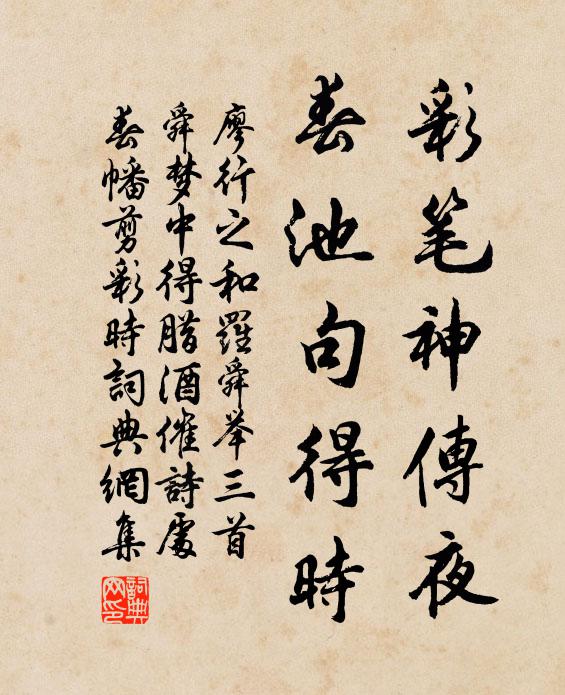 彩笔神傳夜
春池句得時
廖行之和羅舜举三首
舜梦中得腊酒催詩處
春幡剪彩時詞典網集
詞典網印